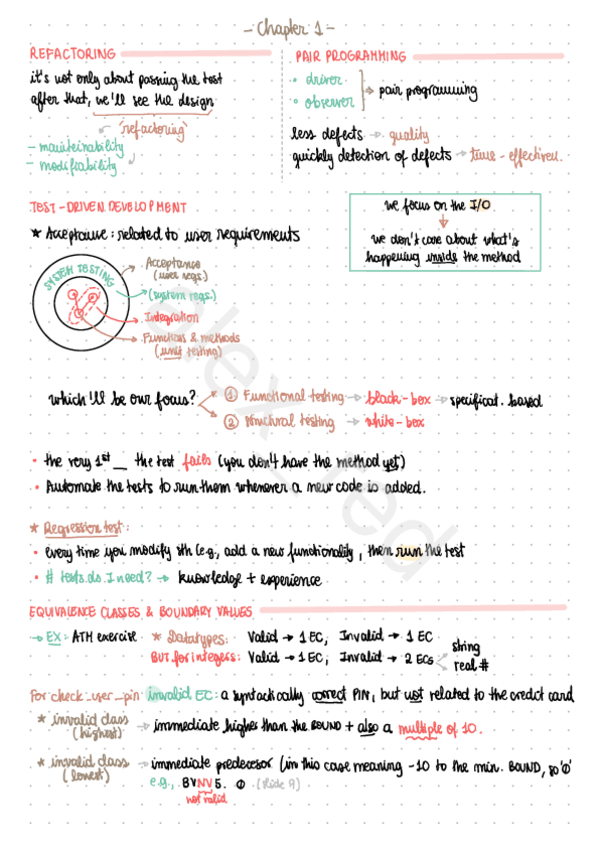 - Chapter 1 -
REFACTORING
it's not only about passing the test
after that, we'll see the design
'refactoring'
- maintainability
- modifiability
PAIR PROGRAMMING
• driver
• observer
pair programming
less defects → quality
quickly detection of defects → time-effectiven.
TEST-DRIVEN DEVELOPMENT
★ Acceptance: related to user requirements
we focus on the I/O
we don't care about what's
happening inside the method
SYSTEM TESTING
Acceptance
(user reqs.)
(system reqs.)
Integration
Functions & methods
(unit testing)
which'll be our focus?
① Functional testing → black-box → specificat. based
② Structural testing → white-box
• the very 1st __ the test fails (you don't have the method yet)
• Automate the tests to run them whenever a new code is added.
★ Regression test:
• every time you modify sth (e.g., add a new functionality, then run the test
• # tests do I need? → knowledge + experience
EQUIVALENCE CLASSES & BOUNDARY VALUES
→ EX: ATM exercise ★ Datatypes: Valid → 1 EC, Invalid → 1 EC
BUT for integers: Valid → 1 EC, Invalid → 2 ECs
string
real #
For check_user_pin invalid EC: a syntactically correct PIN, but not related to the credit card
★ invalid class
(highest)
→ immediate higher than the BOUND + also a multiple of 10.
★ invalid class
(lowest)
→ immediate predecesor (in this case meaning -10 to the min. BOUND, so '0'
e.g., BVNV5. 0 (slide 9)
not valid
alex_red